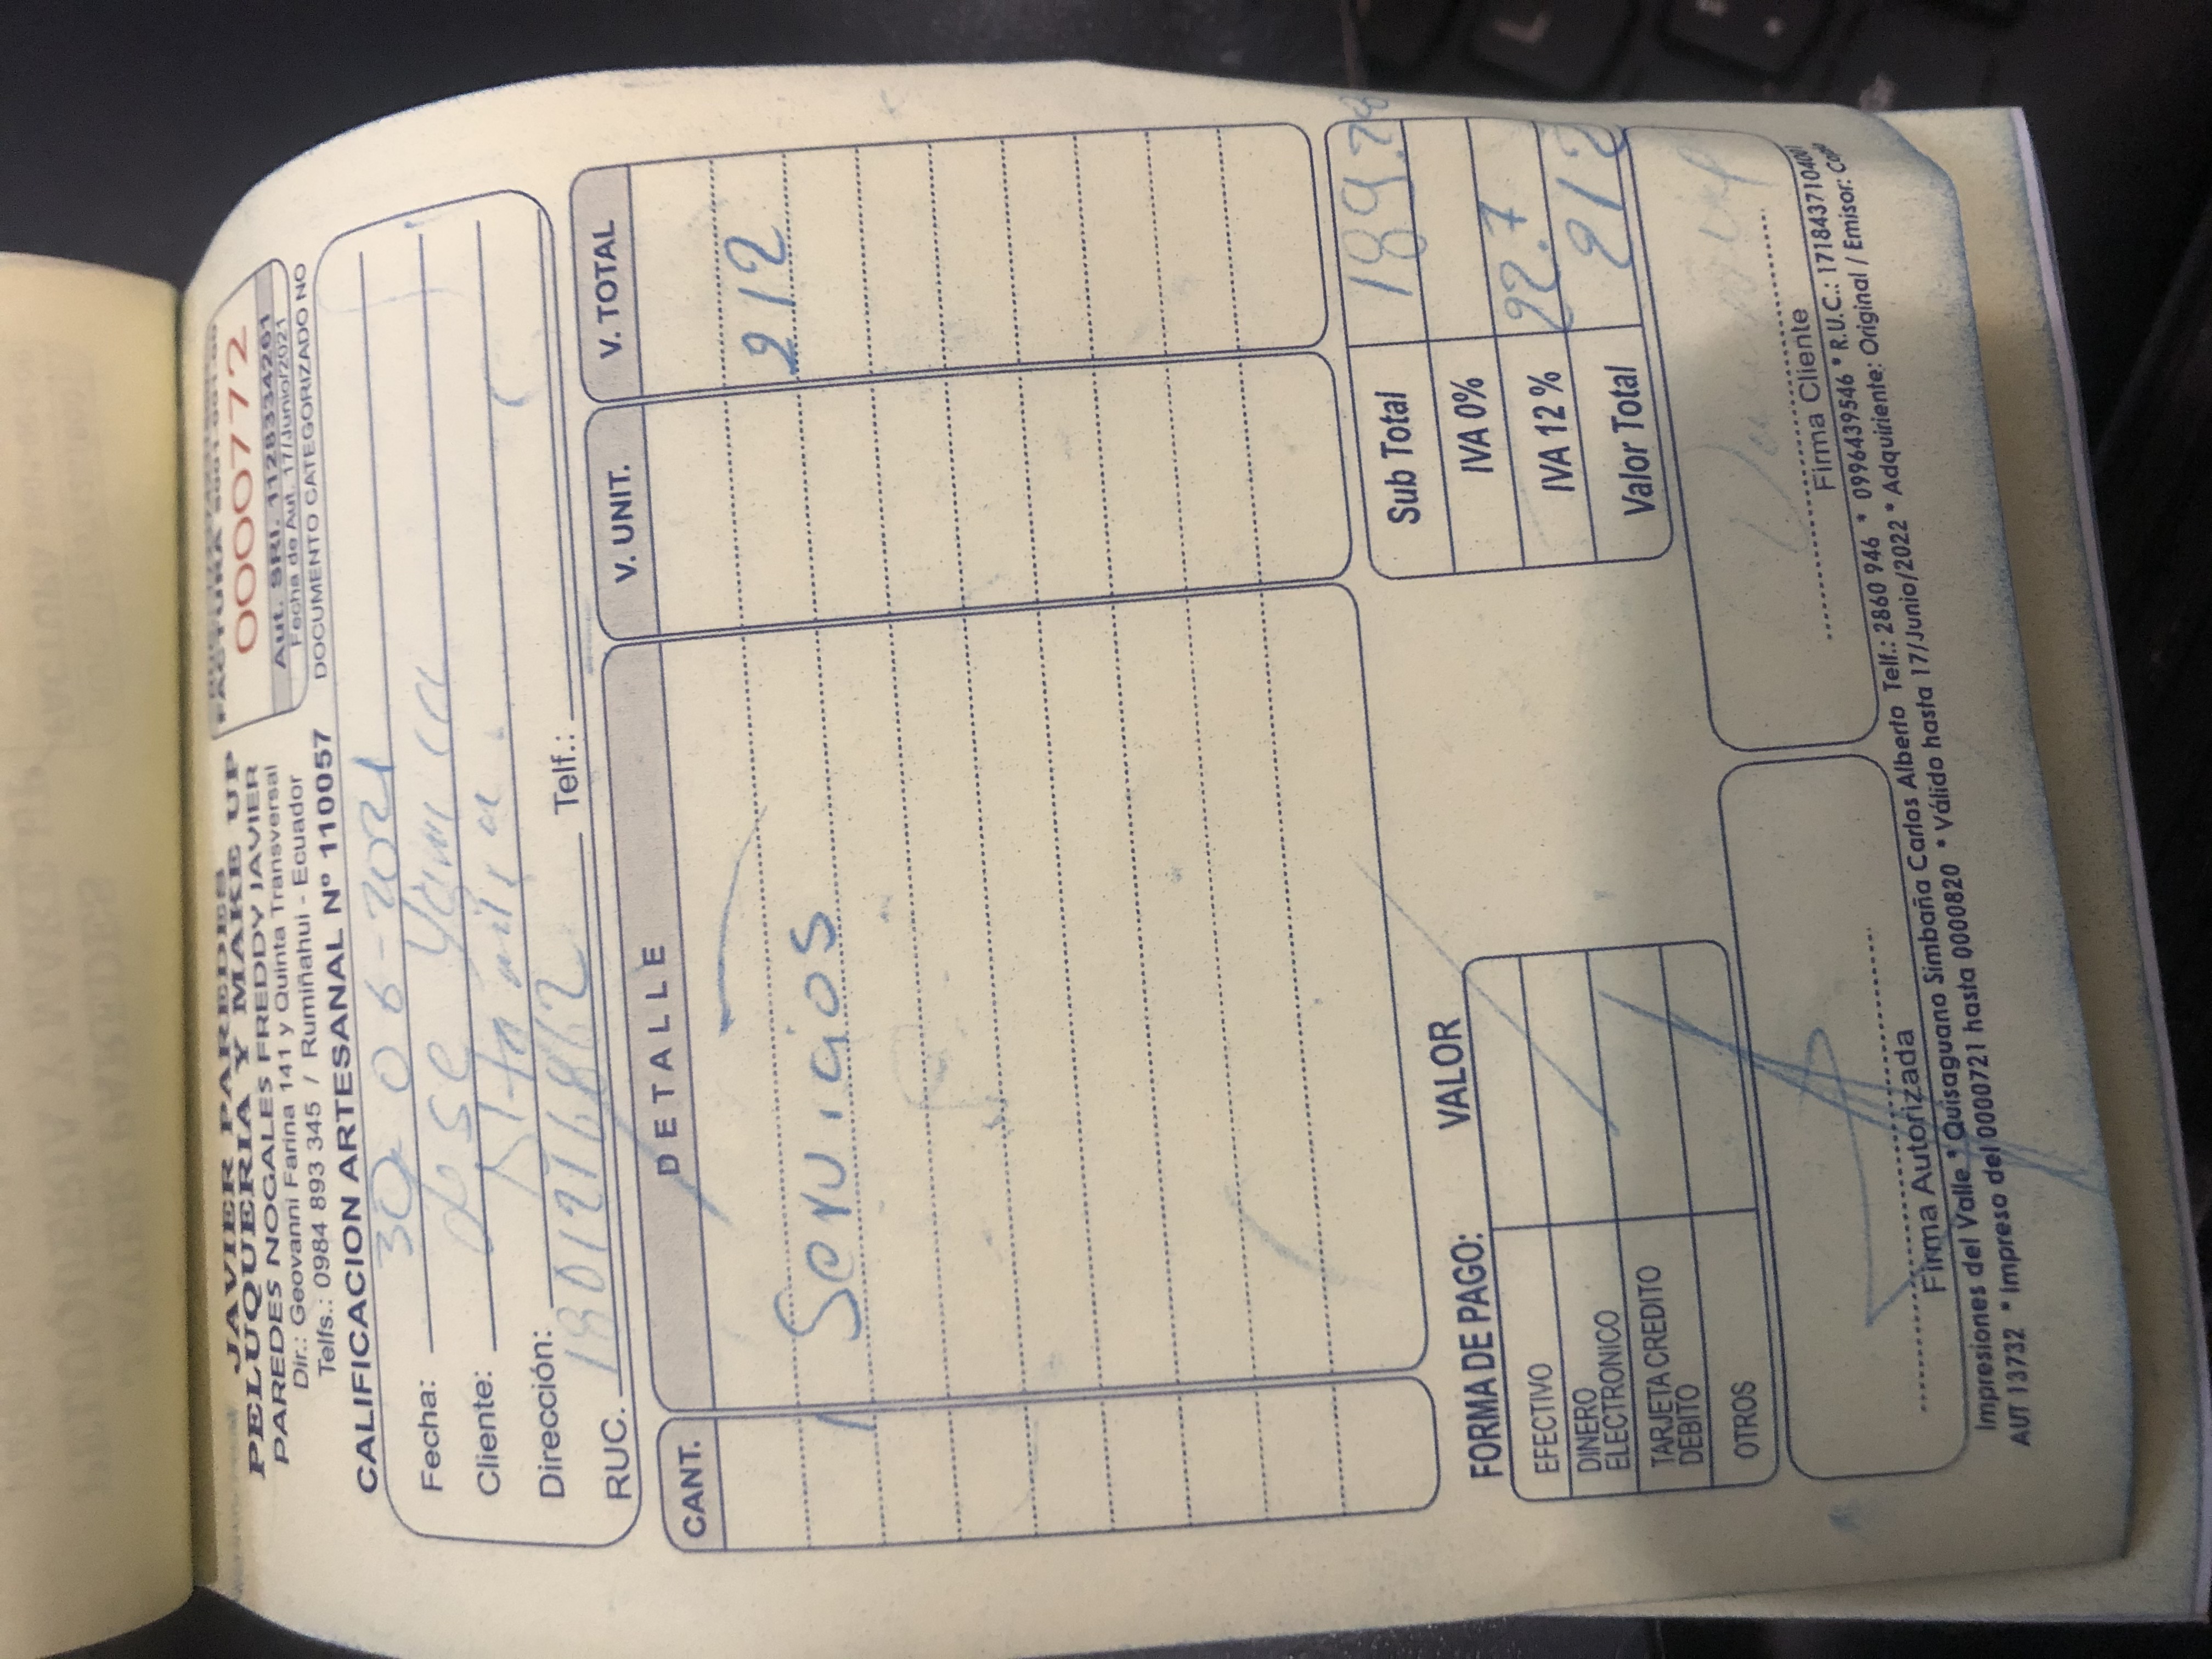 JAVIER PAREDES
PELUQUERIA Y MAKE UP
PAREDES NOGALES FREDDY JAVIER
Dir.: Geovanni Farina 141 y Quinta Transversal
Telfs.: 0984 893 345 / Rumiñahui - Ecuador
CALIFICACION ARTESANAL Nº 110057
FACTURA
0000772
Aut. SRI. 1128334261
Fecha de Aut. 17/Junio/2021
DOCUMENTO CATEGORIZADO NO
Fecha: 30-06-2021
Cliente: Jose
Dirección: Altamira
RUC. 1801216862 Telf.:
CANT. DETALLE V. UNIT. V. TOTAL
1 Servicios 212
Sub Total 189.28
IVA 0%
IVA 12% 22.7
Valor Total 212
FORMA DE PAGO: VALOR
EFECTIVO
DINERO ELECTRONICO
TARJETA CREDITO DEBITO
OTROS
Firma Autorizada
Firma Cliente
Impresiones del Valle * Quisaguano Simbaña Carlos Alberto Telf.: 2860 946 * 0996439546 * R.U.C.: 1718437104001
AUT 13732 * Impreso del 0000721 hasta 0000820 * Válido hasta 17/Junio/2022 * Adquiriente: Original / Emisor: Copia